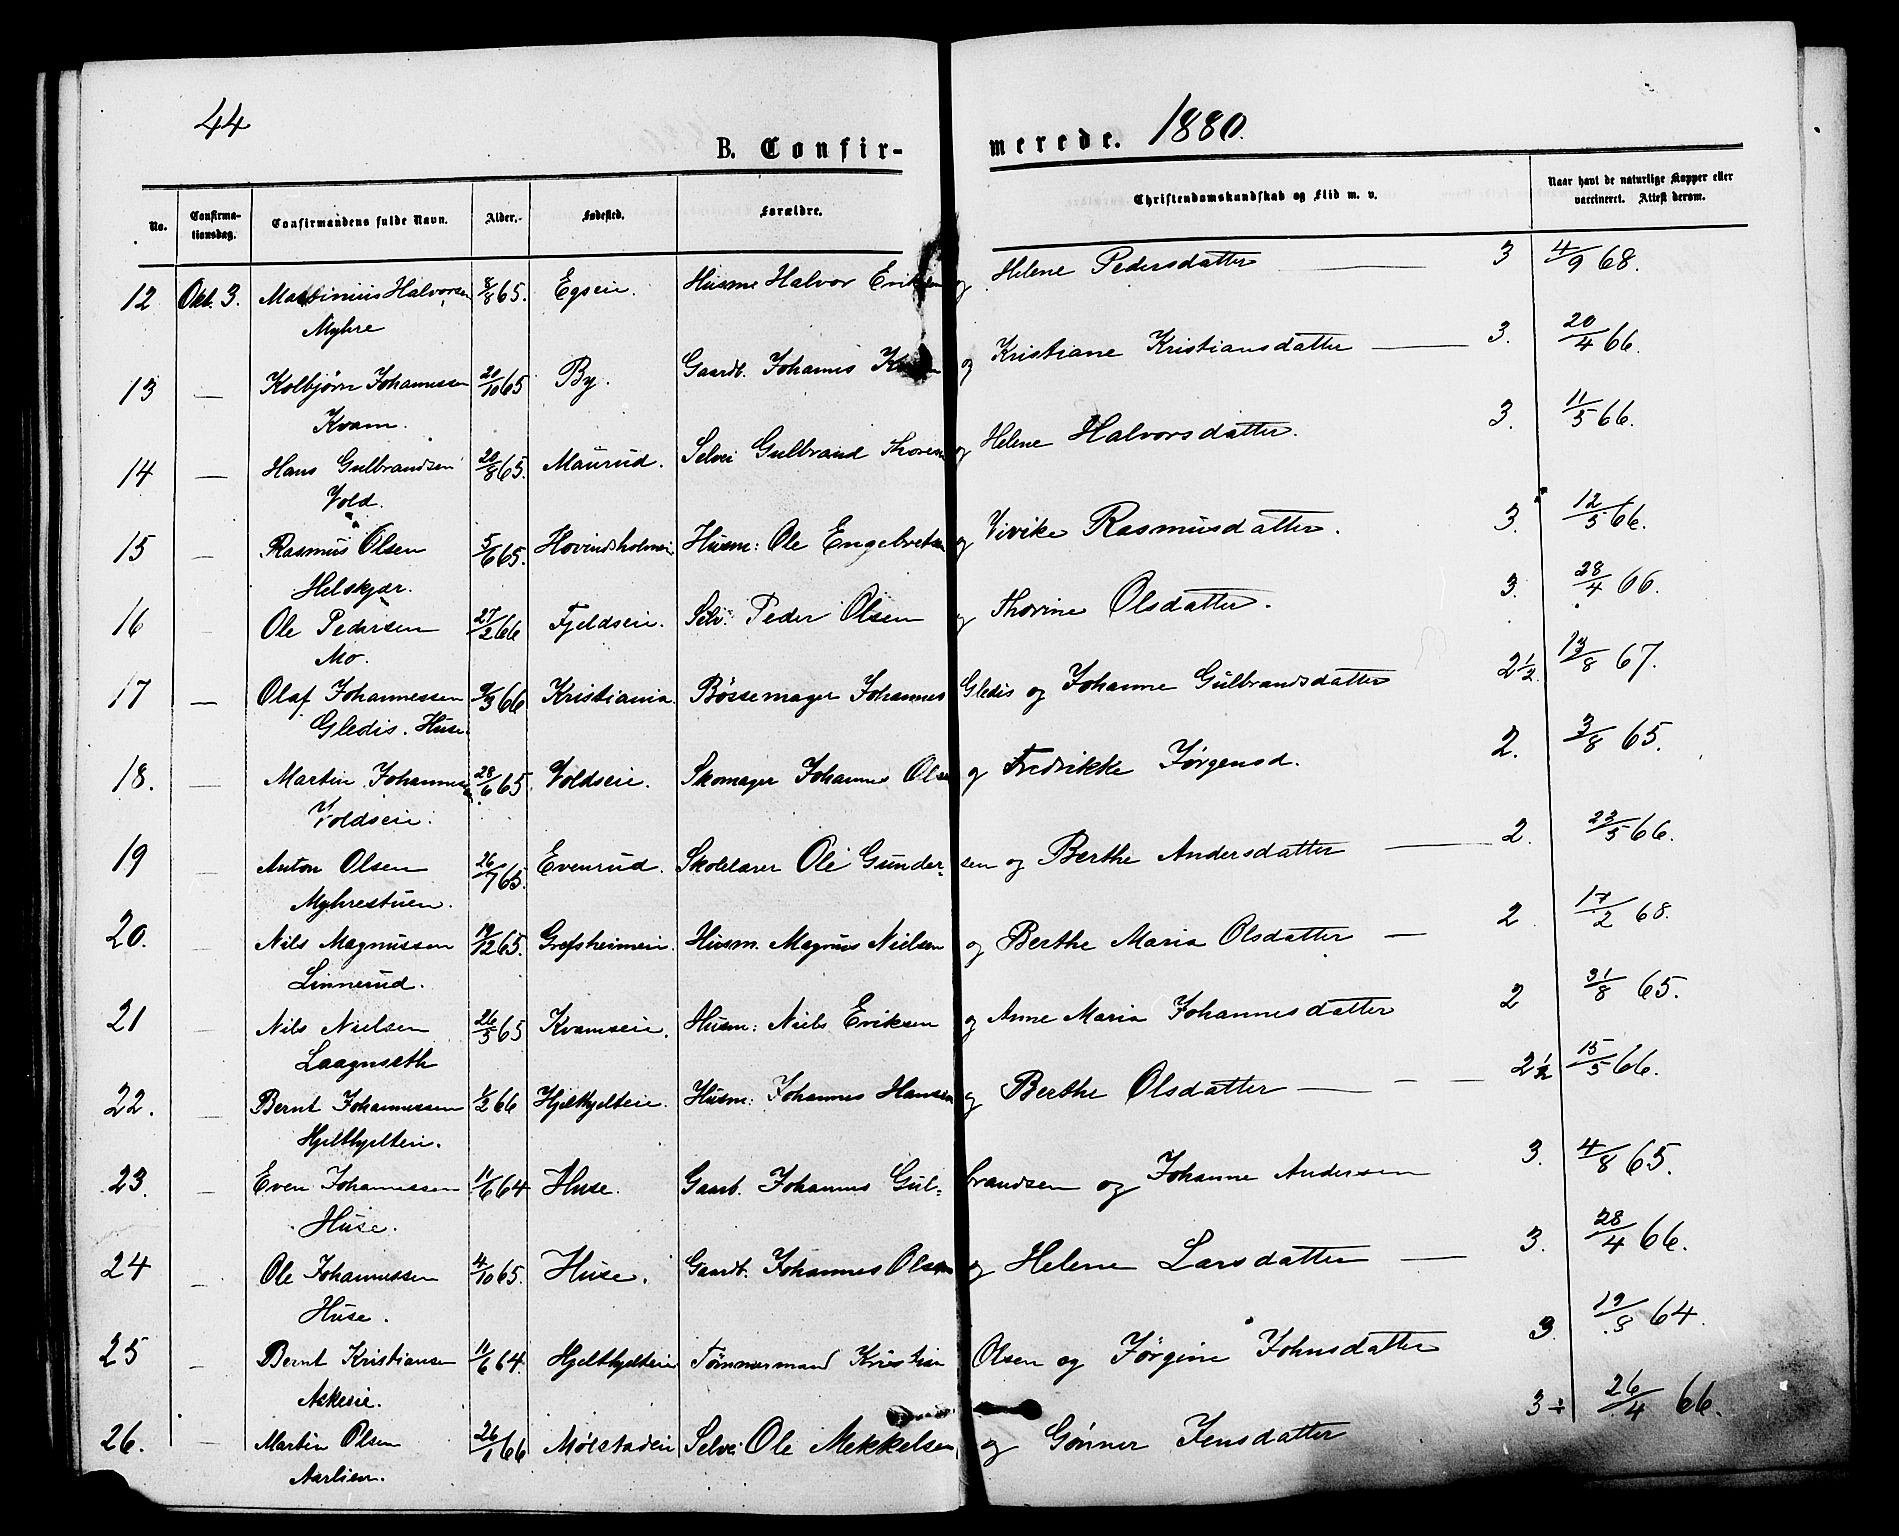 44
B. Confir- merede. 1880.
No. Confirma-tionsdag. Confirmandens fulde Navn. Alder. Fødested. Forældre. Christendomskundskab og Flid m. v. Naar havt de naturlige Kopper eller vaccineret. Attest derom.
12 Okt. 3. Martinius Halvorsen 8/8 65. Egseie. Husm Halvor Eriksen og Helene Pedersdatter 3 4/9 68.
Myhre
13 — Kolbjørn Johannessen 20/10 65 By. Gaardb. Johannes og Kristiane Kristiansdatter 3. 20/4 66.
Kvam.
14 — Hans Gulbrandsen 20/8 65. Maurud. Selvei Gulbrand Thoresen og Helene Halvorsdatter. 3. 11/5 66.
Vold.
15 — Rasmus Olsen 5/6 65. Hovindsholmei Husm: Ole Engebretsen og Vivike Rasmusdatter. 3. 12/5 66.
Helskjær.
16 Ole Pedersen 27/2 66 Fjeldseie. Selv: Peder Olsen og Thorine Olsdatter. 3. 28/4 66.
Mo.
17 — Olaf Johannessen 9/3 66 Kristiania. Bøssemager Johannes Gledis og Johanne Gulbrandsdatter 2 1/2. 13/8 67.
Gledis. Huse.
18. — Martin Johannessen 28/6 65 Voldseie. Skomager Johannes Olsen og Fredrikke Jørgensd. 2. 3/8 65.
Voldseie.
19 — Anton Olsen 26/7 65. Evenrud. Skolelærer Ole Gunder- sen og Berthe Andersdatter 2. 23/5 66.
Myhrestuen.
20. — Nils Magnussen 17/12 65. Grefsheimeie. Husm. Magnus Nielsen og Berthe Maria Olsdatter — 2. 17/2 68.
Linnerud.
21 — Nils Nielsen 26/5 65 Kvamseie. Husm: Niels Eriksen og Anne Maria Johannesdatter 2 31/8 65.
Laagnseth
22. — Bernt Johannessen 1/2 66 Hjelthjelteie. Husm: Johannes Hansen og Berthe Olsdatter — — — 2 1/2 15/5 66.
Hjelthjelteie.
23. — Even Johannessen 11/6 64 Huse. Gaarb. Johannes Gul- brandsen og Johanne Andersen 3. 4/8 65.
Huse.
24 — Ole Johannessen 4/10 65. Huse. Gaardb. Johannes Olsen og Helene Larsdatter — 3. 28/4 66.
Huse.
25 — Bernt Kristiansen 11/6 64. Hjelthjelteie Tømmermand Kristian Olsen og Jørgine Johnsdatter 3. 19/8 64.
Askeseie.
26. — Martin Olsen 26/1 66 Mølstadeie Selvei Ole Mekkelsen og Gønner Jensdatter 3÷ 26/4 66.
Aarlien.